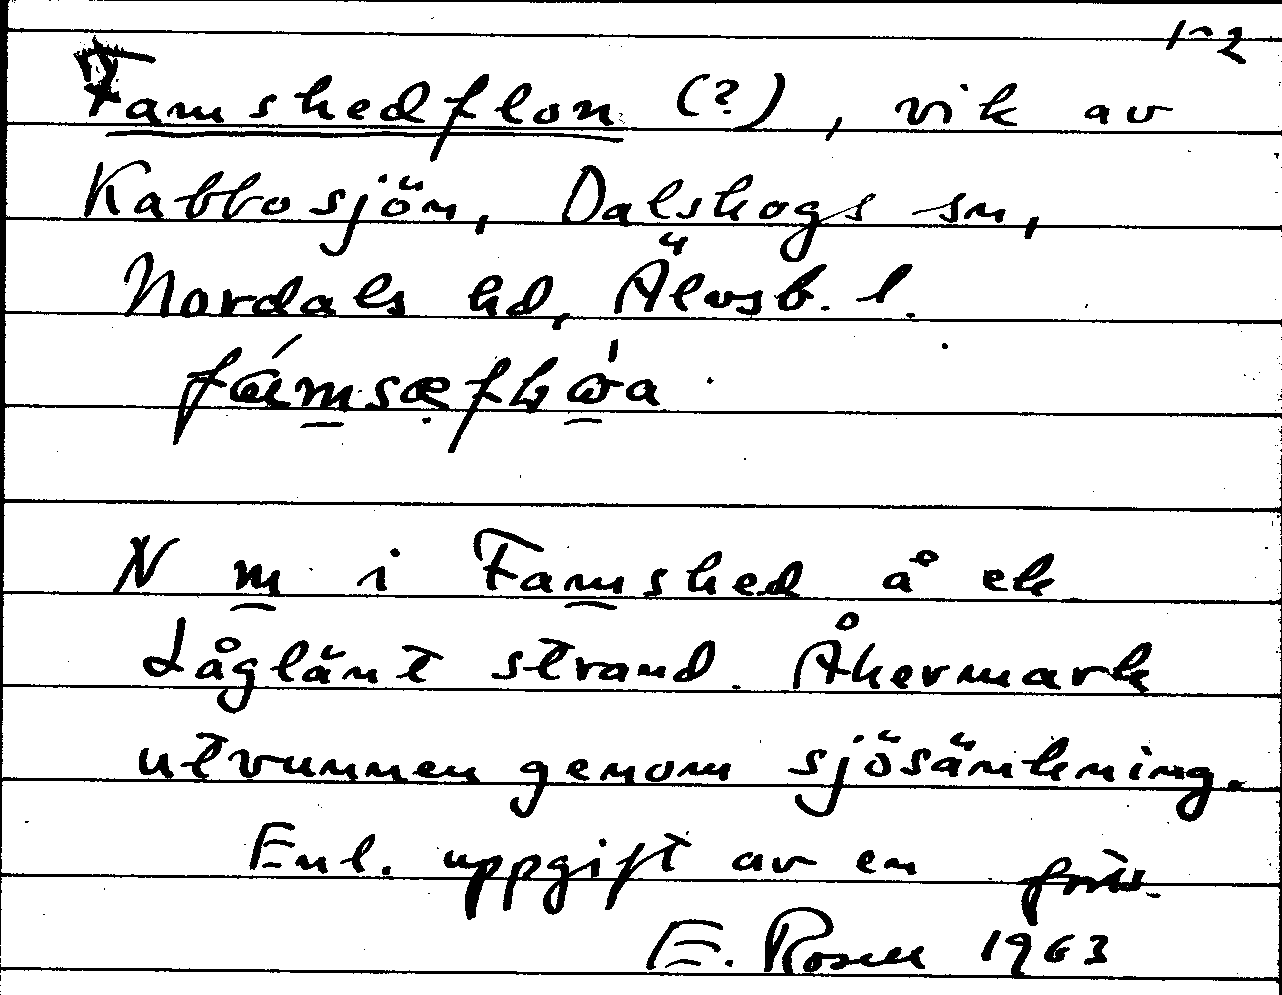 1-2
Famshedflon (?), vik av
Kabbosjön, Dalskogs sn,
Nordals hd, Älvsb. l.
N m i Famshed å ek
Låglänt strand. Åkermark
utvunnen genom sjösänkning.
Enl. uppgift av en
E. Rosell 1963